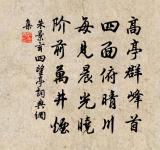 高亭群峰首
四面俯晴川
每見晨光曉
階前萬井煙
朱景玄四望亭詞典網
集